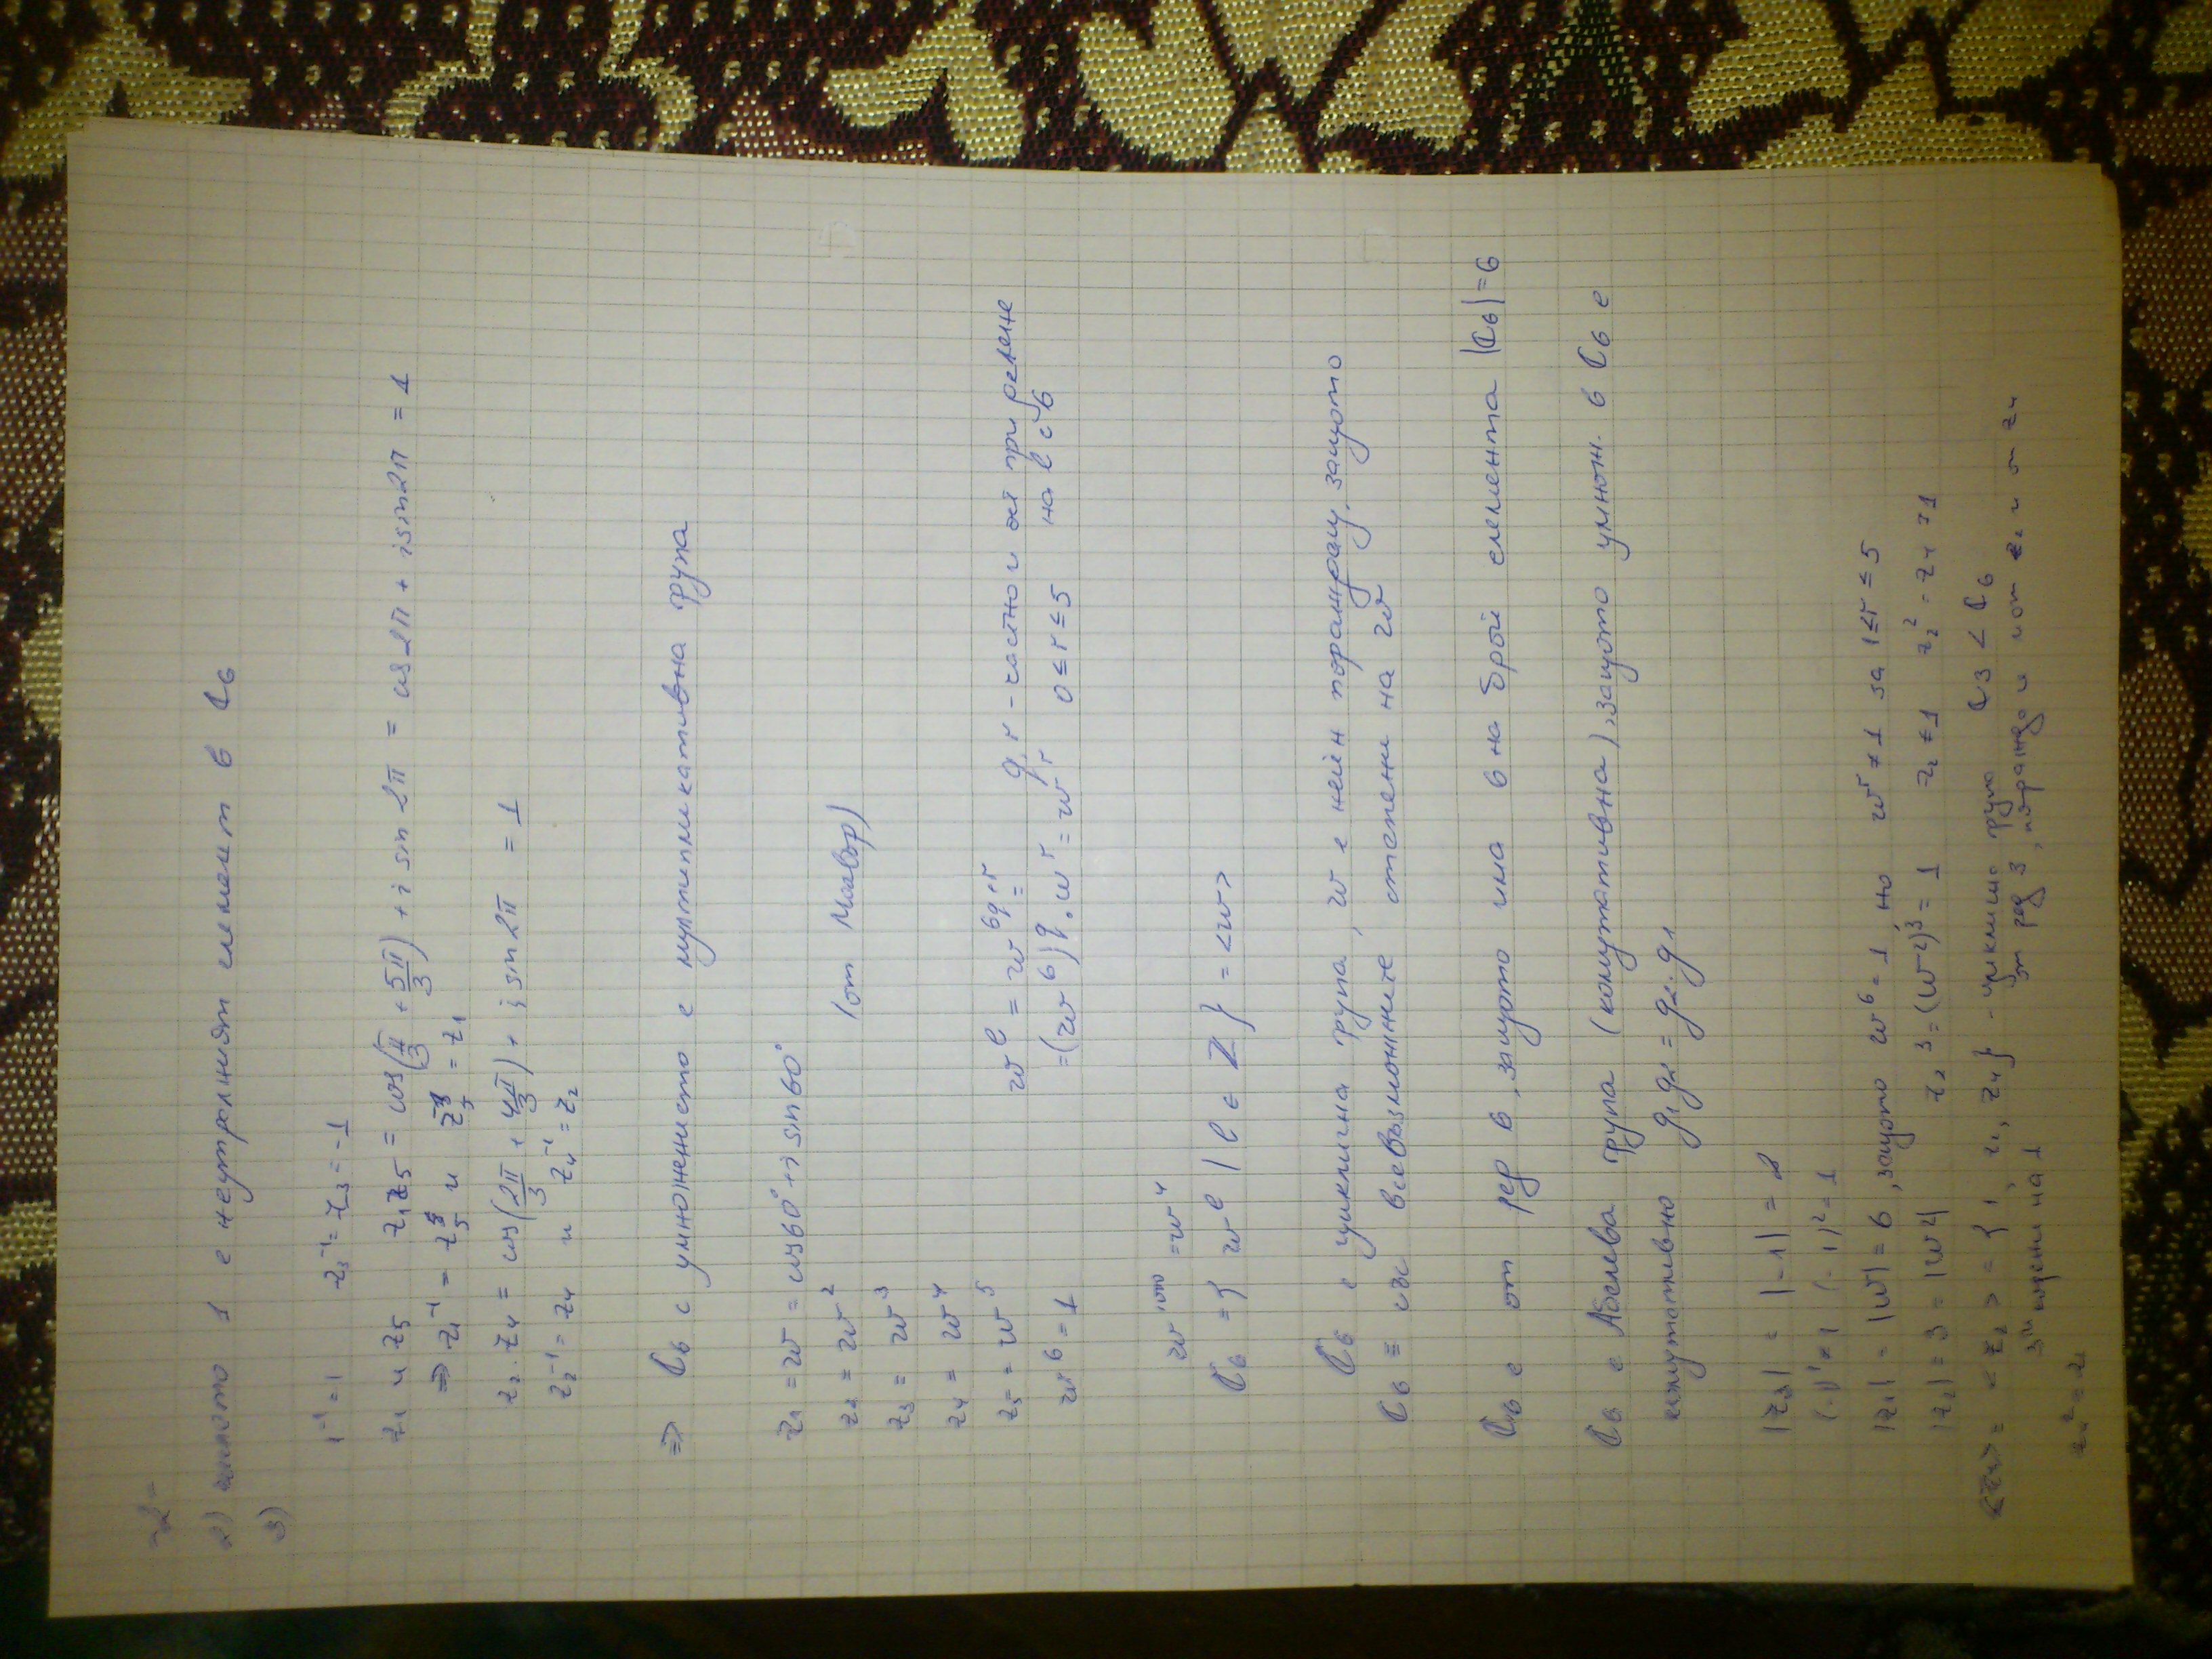 -2-
2) числото 1 е неутралният елемент в ℂ₆
3)
1⁻¹ = 1 z₃⁻¹ = z₃ = -1
z₁ и z₅ z₁z₅ = cos(π/3 + 5π/3) + i sin 2π = cos 2π + i sin 2π = 1
⇒ z₁⁻¹ = z₅ и z₅⁻¹ = z₁
z₂.z₄ = cos(2π/3 + 4π/3) + i sin 2π = 1
z₂⁻¹ = z₄ и z₄⁻¹ = z₂
⇒ ℂ₆ с умножението е мултипликативна група
z₁ = w = cos 60° + i sin 60°
z₂ = w² (от Моавър)
z₃ = w³
z₄ = w⁴
z₅ = w⁵ wˡ = w^(6q+r) = q, r - частно и ост при делене
w⁶ = 1 = (w⁶)^q . wʳ = wʳ 0 ≤ r ≤ 5 на l с 6
w¹⁰⁰ = w⁴
ℂ₆ = { wˡ | l ∈ ℤ } = <w>
ℂ₆ е циклична група, w е неин пораждащ, защото
ℂ₆ = със всевъзможните степени на w
ℂ₆ е от ред 6, защото има 6 на брой елемента |ℂ₆| = 6
ℂ₆ е Абелева група (комутативна), защото умнож. в ℂ₆ е
комутативно g₁g₂ = g₂.g₁
|z₃| = |-1| = 2
(-1)¹ ≠ 1 (-1)² = 1
|z₁| = |w| = 6, защото w⁶ = 1, но wʳ ≠ 1 за 1 ≤ r ≤ 5
|z₂| = 3 = |w²| z₂³ = (w²)³ = 1 z₂ ≠ 1 z₂² = z₄ ≠ 1
<z₄> = <z₂> = { 1, z₂, z₄ } - циклична група ℂ₃ < ℂ₆
3ти корени на 1 от ред 3, породена и от z₂ и от z₄
z₄² = z₂